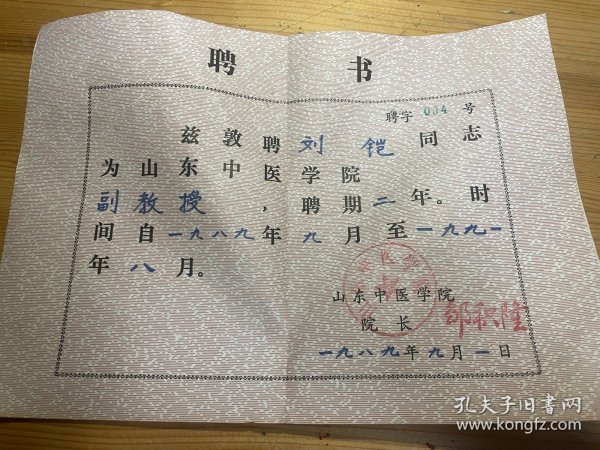 聘 书
聘字 004 号
兹敦聘 刘铠 同志
为山东中医学院
副教授，聘期二年。时
间自一九八九年九月至一九九一
年八月。
山东中医学院
院 长 邹积隆
一九八九年九月一日
孔夫子旧书网
www.kongfz.com